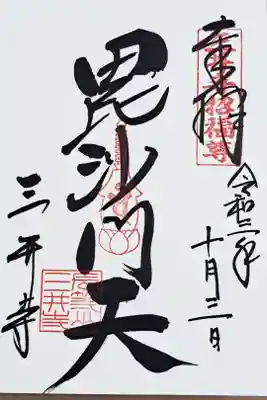 奉拝
令和三年
十月三日
毘沙門天
三井寺